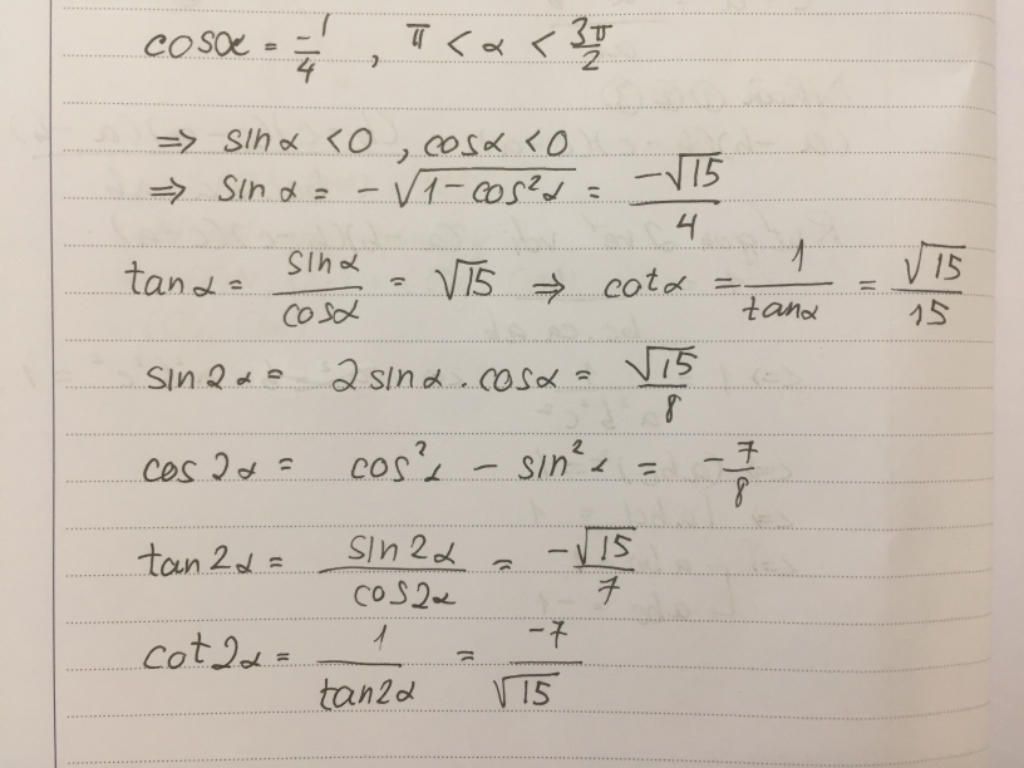 cosα = -1/4 , π < α < 3π/2
⇒ sinα < 0 , cosα < 0
⇒ sinα = -√(1-cos²α) = -√15/4
tanα = sinα/cosα = √15 ⇒ cotα = 1/tanα = √15/15
sin2α = 2sinα.cosα = √15/8
cos2α = cos²α - sin²α = -7/8
tan2α = sin2α/cos2α = -√15/7
cot2α = 1/tan2α = -7/√15